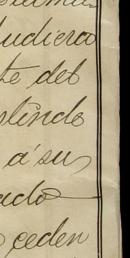 udiera
te del
plindo
á su
ado
ceden